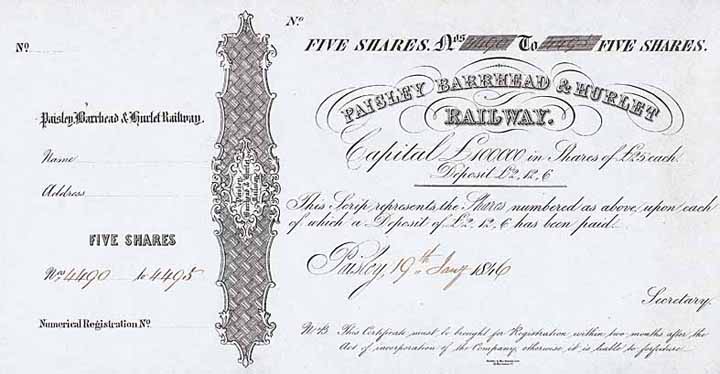 No
Paisley, Barrhead & Hurlet Railway.
Name
Address
FIVE SHARES
Nos 4490 to 4495
Numerical Registration No.
Paisley Barrhead & Hurlet Railway
No
FIVE SHARES. Nos 4490 To 4495 FIVE SHARES.
PAISLEY BARRHEAD & HURLET
RAILWAY.
Capital £100000 in Shares of £25 each.
Deposit £2.12.6
This Scrip represents the Shares numbered as above, upon each
of which a Deposit of £2.12.6 has been paid.
Paisley, 19th Jany 1846
Secretary.
NB This Certificate must be brought for Registration within two months after the
Act of incorporation of the Company, otherwise it is liable to forfeiture.